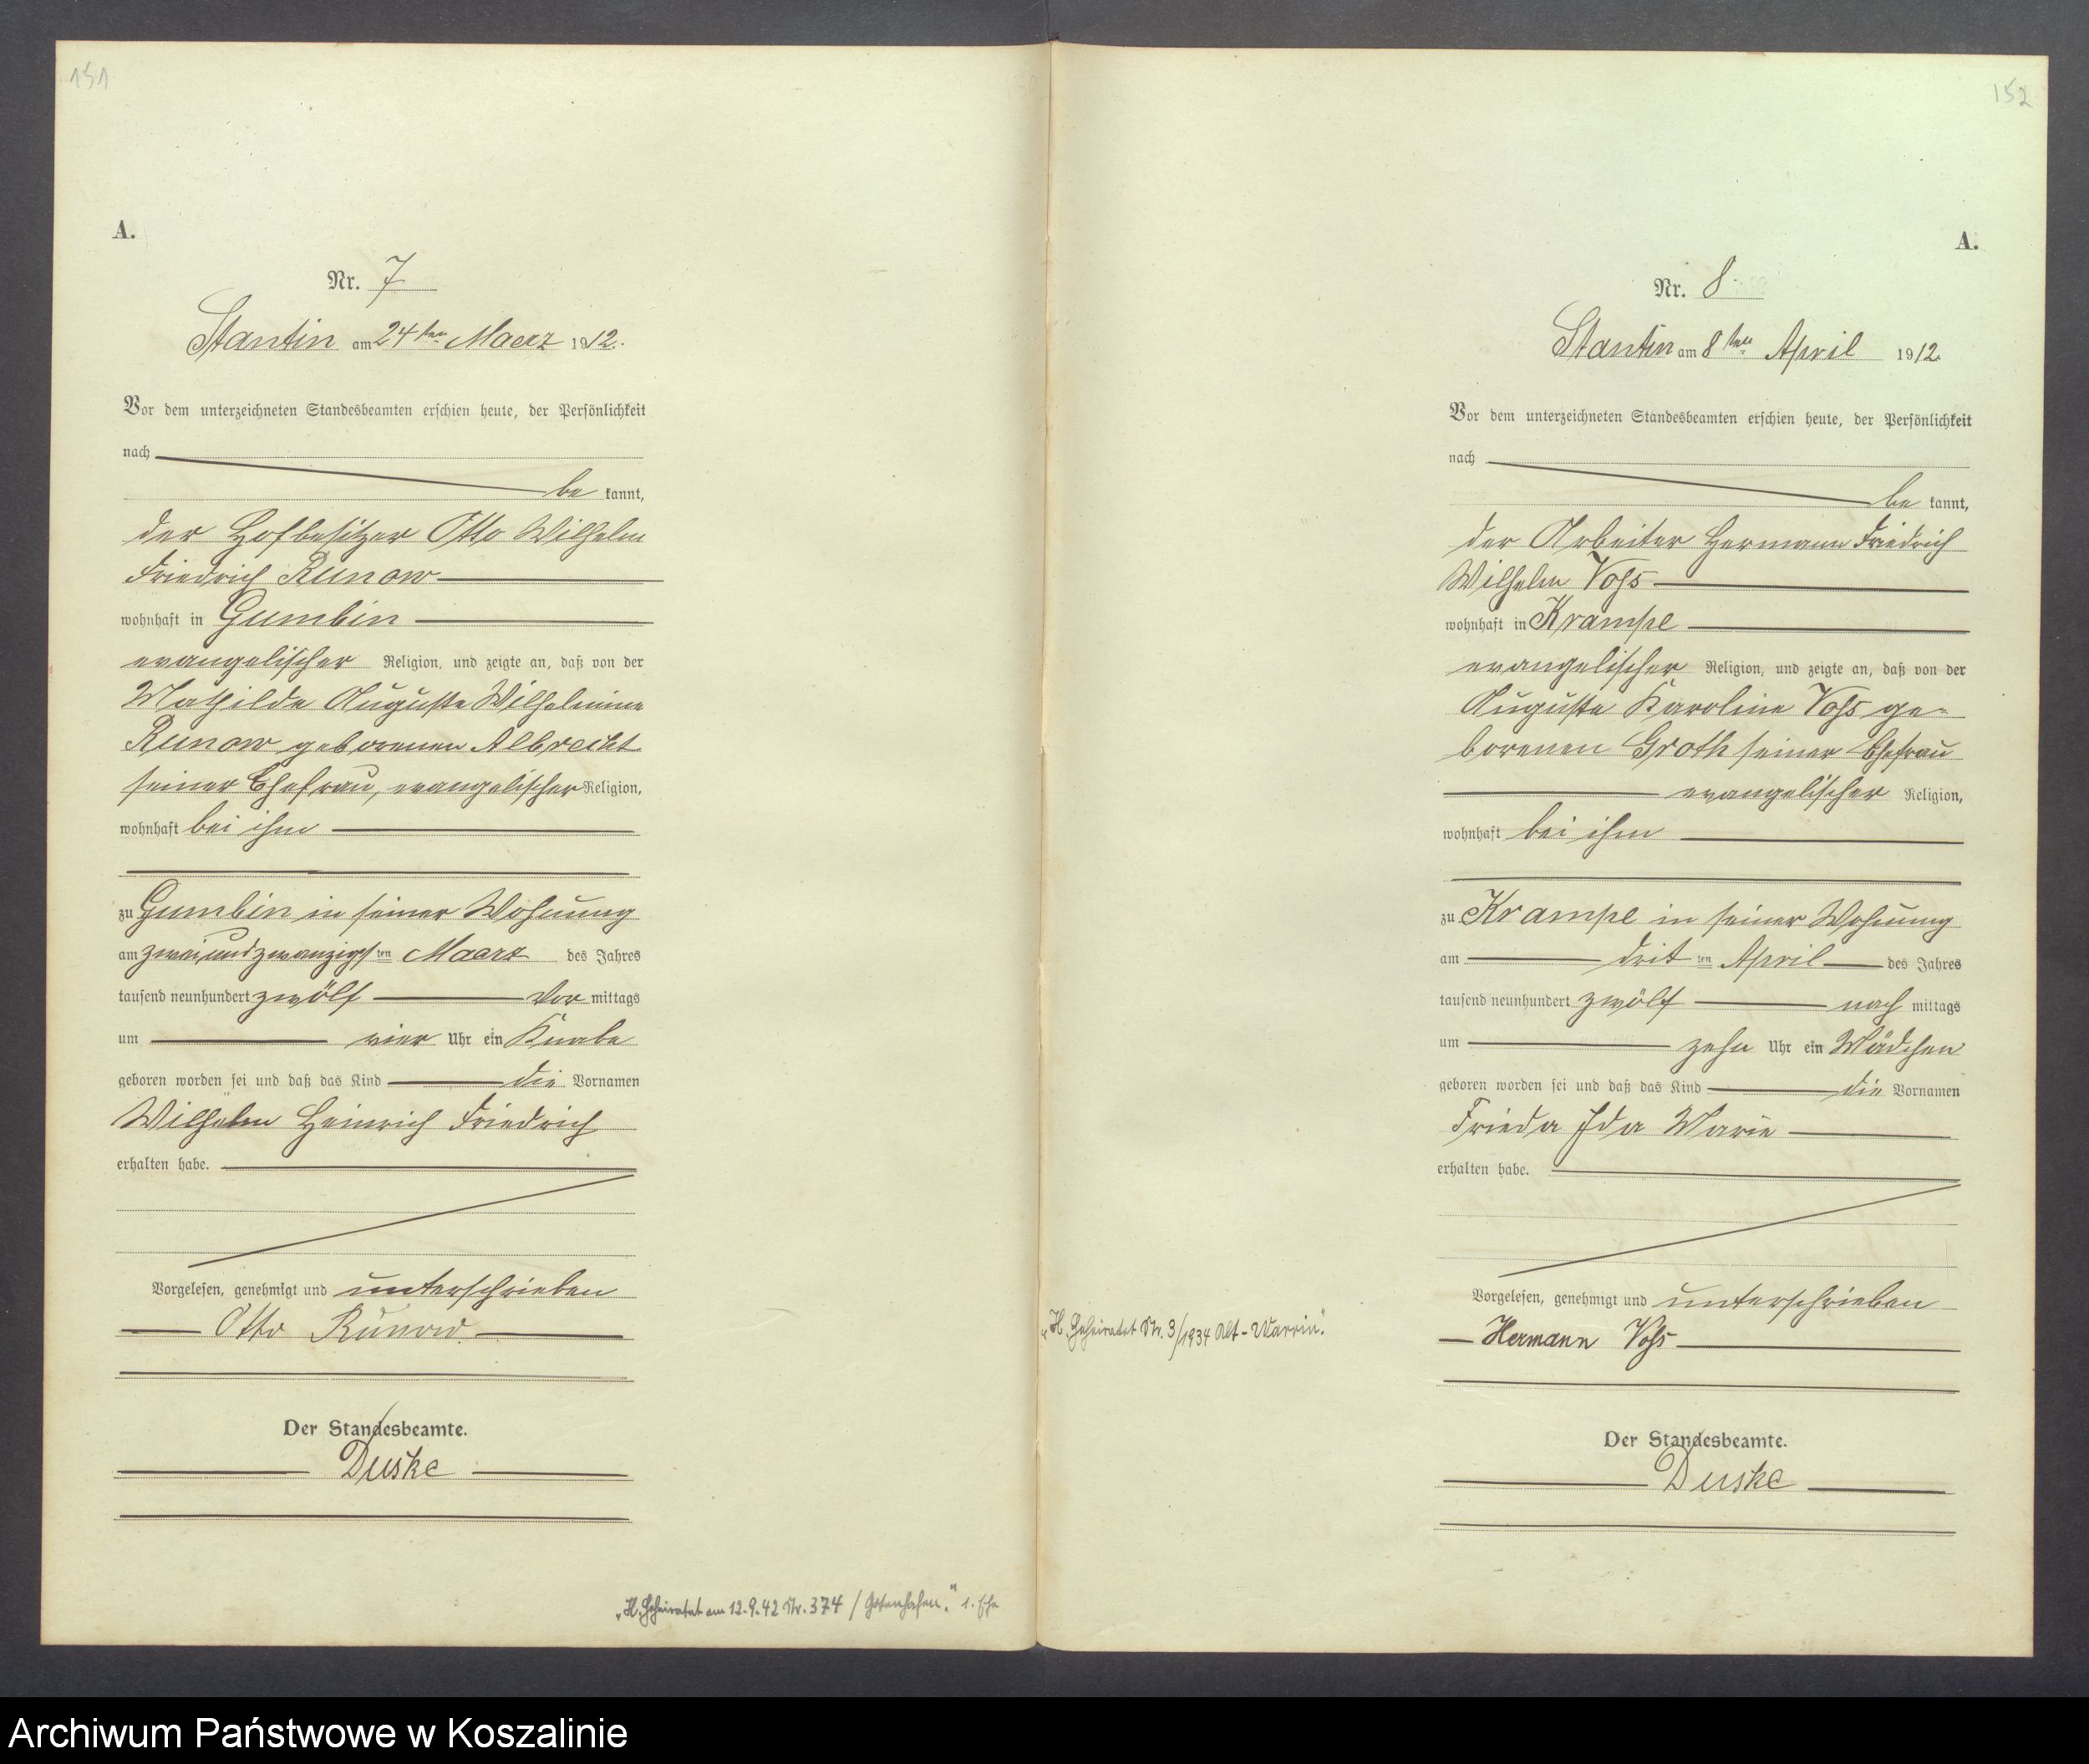 151
A.
Nr. 7
Stantin am 24ten Maerz 1912.
Vor dem unterzeichneten Standesbeamten erschien heute, der Persönlichkeit
nach
be kannt,
der Hofbesitzer Otto Wilhelm
Friedrich Runow
wohnhaft in Gumbin
evangelischer Religion, und zeigte an, daß von der
Mathilde Auguste Wilhelmine
Runow geborenen Albrecht
seiner Ehefrau, evangelischer Religion,
wohnhaft bei ihm
zu Gumbin in seiner Wohnung
am zweiundzwanzigsten Maerz des Jahres
tausend neunhundert zwölf Vor mittags
um vier Uhr ein Knabe
geboren worden sei und daß das Kind die Vornamen
Wilhelm Heinrich Friedrich
erhalten habe.
Vorgelesen, genehmigt und unterschrieben
Otto Runow
Der Standesbeamte.
Duske
„H. Geheiratet am 12.9.42 Nr. 374 / Gotenhafen." 1. Ehe
152
A.
Nr. 8
Stantin am 8ten April 1912.
Vor dem unterzeichneten Standesbeamten erschien heute, der Persönlichkeit
nach
be kannt,
der Arbeiter Hermann Friedrich
Wilhelm Voss
wohnhaft in Krampe
evangelischer Religion, und zeigte an, daß von der
Auguste Karoline Voss ge-
borenen Groth seiner Ehefrau
evangelischer Religion,
wohnhaft bei ihm
zu Krampe in seiner Wohnung
am dritten April des Jahres
tausend neunhundert zwölf nach mittags
um zehn Uhr ein Mädchen
geboren worden sei und daß das Kind die Vornamen
Frieda Ida Marie
erhalten habe.
Vorgelesen, genehmigt und unterschrieben
„H. Geheiratet Nr. 3/1934 Alt-Warrin."
Hermann Voss
Der Standesbeamte.
Duske
Archiwum Państwowe w Koszalinie